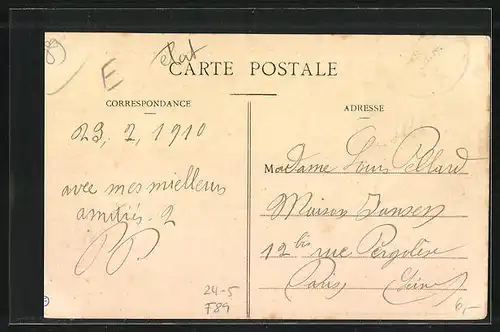 89
E
etat
CARTE POSTALE
CORRESPONDANCE
ADRESSE
23, 2, 1910
avec mes mielleurs
amitiés. 2
Madame Louis Pellard
Maison Jansen
12 bis rue Pergolèse
Paris Seine
24-5
F89
6,-